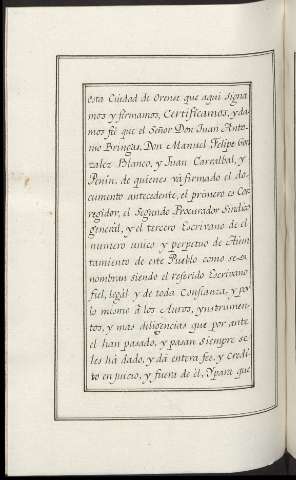 esta Ciudad de Orense que aqui signa
mos y firmamos, Certificamos, y da
mos feè que el Señor Don Juan Anto
nio Bringas, Don Manuel Felipe Gon
zalez Blanco, y Juan Carvalbal, y
Penin, de quienes vá firmado el do
cumento antecedente, el primero es Cor
regidor, el Segundo Procurador Sindico
general, y el tercero Escrivano de el
numero unico y perpetuo de Aiun
tamiento de este Pueblo como se
nombran siendo el referido Escrivano
fiel, legál y de toda Confianza, y por
lo mismo á los Autos, ynstrumen
tos, y mas diligencias que por ante
el han pasado, y pasan siempre se
les há dado, y dá entera feè, y Credi
to en juicio, y fuera de él, Ypara que